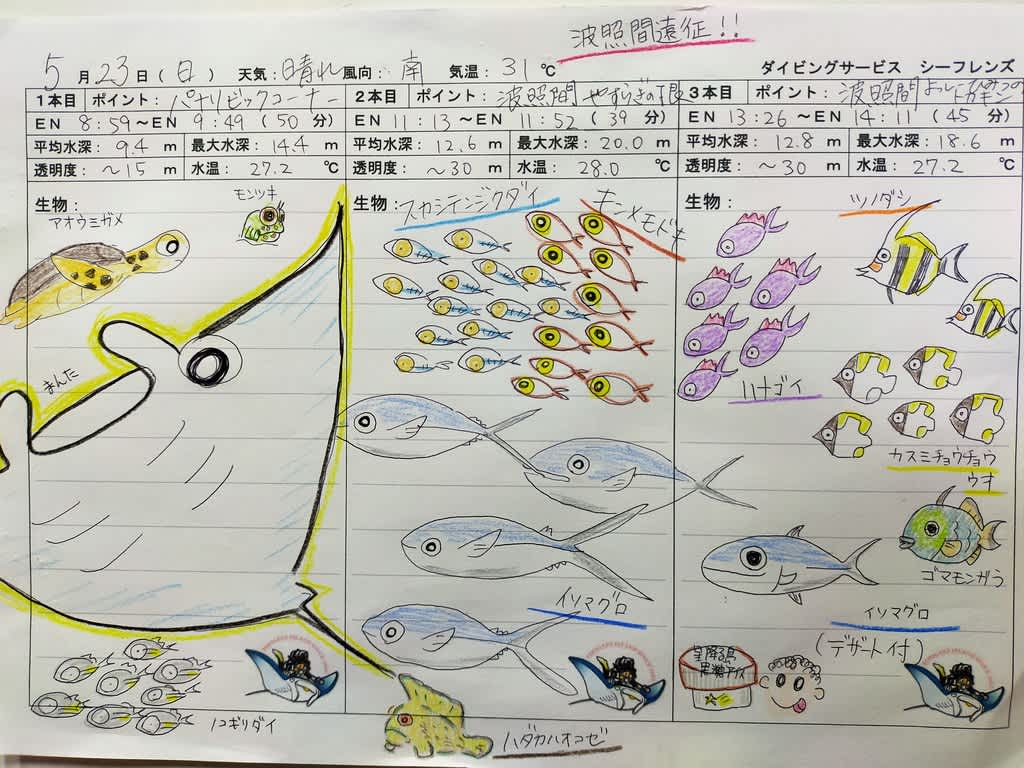 波照間遠征!!
5月23日(日) 天気:晴れ 風向:南 気温:31℃
ダイビングサービス シーフレンズ
1本目 ポイント:パナリビックコーナー
EN 8:59~EN 9:49(50分)
平均水深:9.4m 最大水深:14.4m
透明度:~15m 水温:27.2℃
生物:
アオウミガメ
モンツキ
まんた
ノコギリダイ
2本目 ポイント:波照間
EN 11:13~EN 11:52(39分)
平均水深:12.6m 最大水深:20.0m
透明度:~30m 水温:28.0℃
生物:
スカシテンジクダイ
キンメモドキ
イソマグロ
ハダカハオコゼ
3本目 ポイント:波照間
EN 13:26~EN 14:11(45分)
平均水深:12.8m 最大水深:18.6m
透明度:~30m 水温:27.2℃
生物:
ツノダシ
ハナゴイ
カスミチョウチョウ
ウオ
ゴマモンガラ
イソマグロ
(デザート付)
星降る島
黒糖アイス